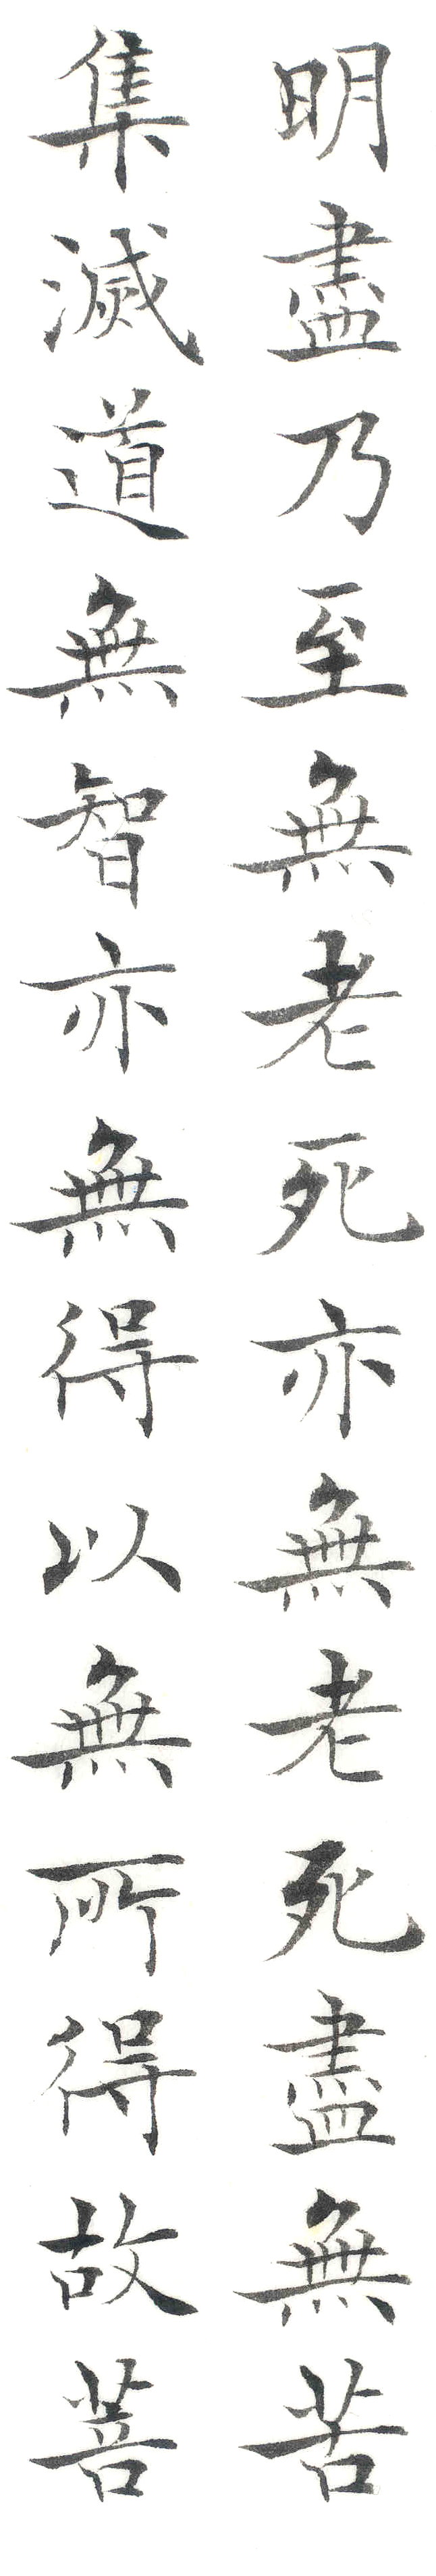 明盡乃至無老死亦無老死盡無苦
集滅道無智亦無得以無所得故菩